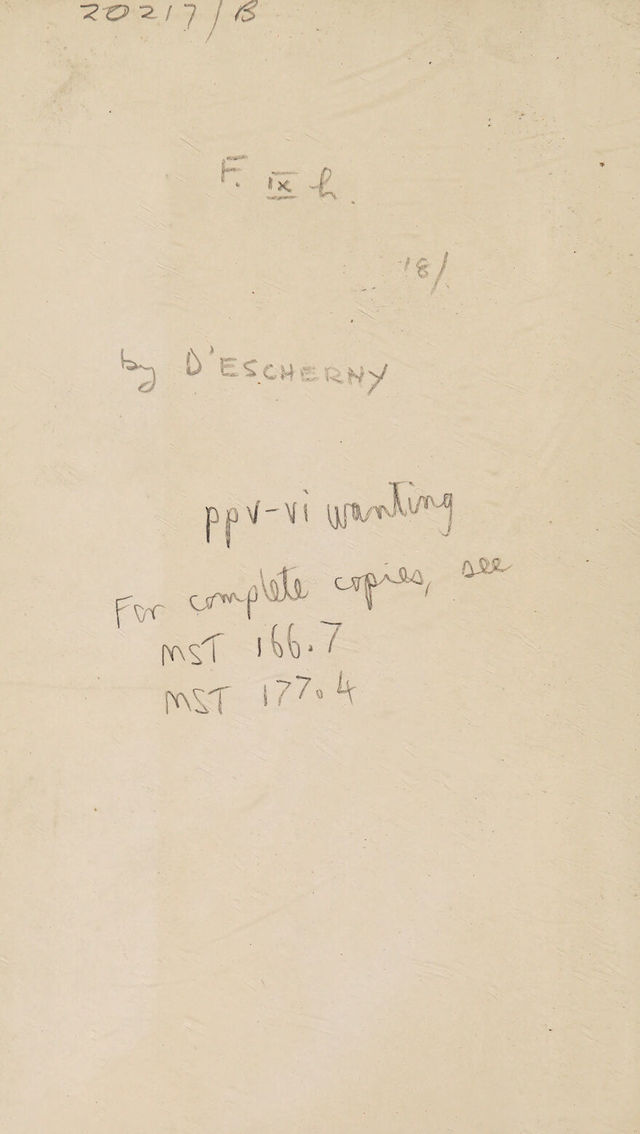 20217/B
F. IX h.
18/
by D'ESCHERNY
ppv-vi wanting
For complete copies, see
MST 166.7
MST 177.4